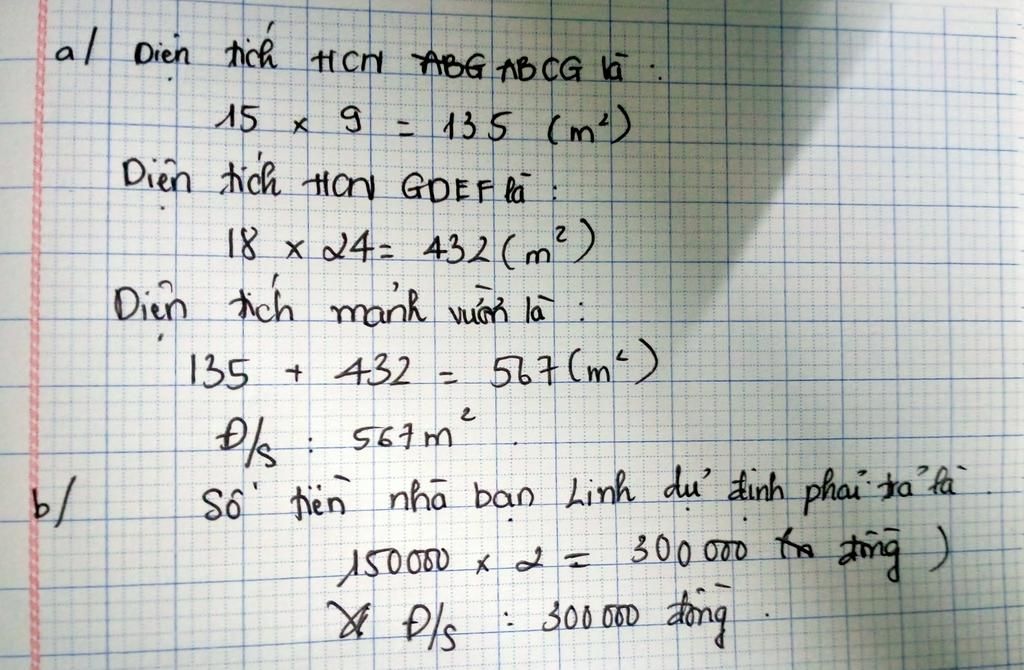 a/ Diện tích HCN ABG ABCG là :
15 x 9 = 135 (m²)
Diện tích HCN GDEF là :
18 x 24 = 432 (m²)
Diện tích mảnh vườn là :
135 + 432 = 567 (m²)
Đ/s : 567 m² .
b/ Số tiền nhà bạn Linh dự định phải trả là
150000 x 2 = 300 000 (đồng)
Đ/s : 300 000 đồng .